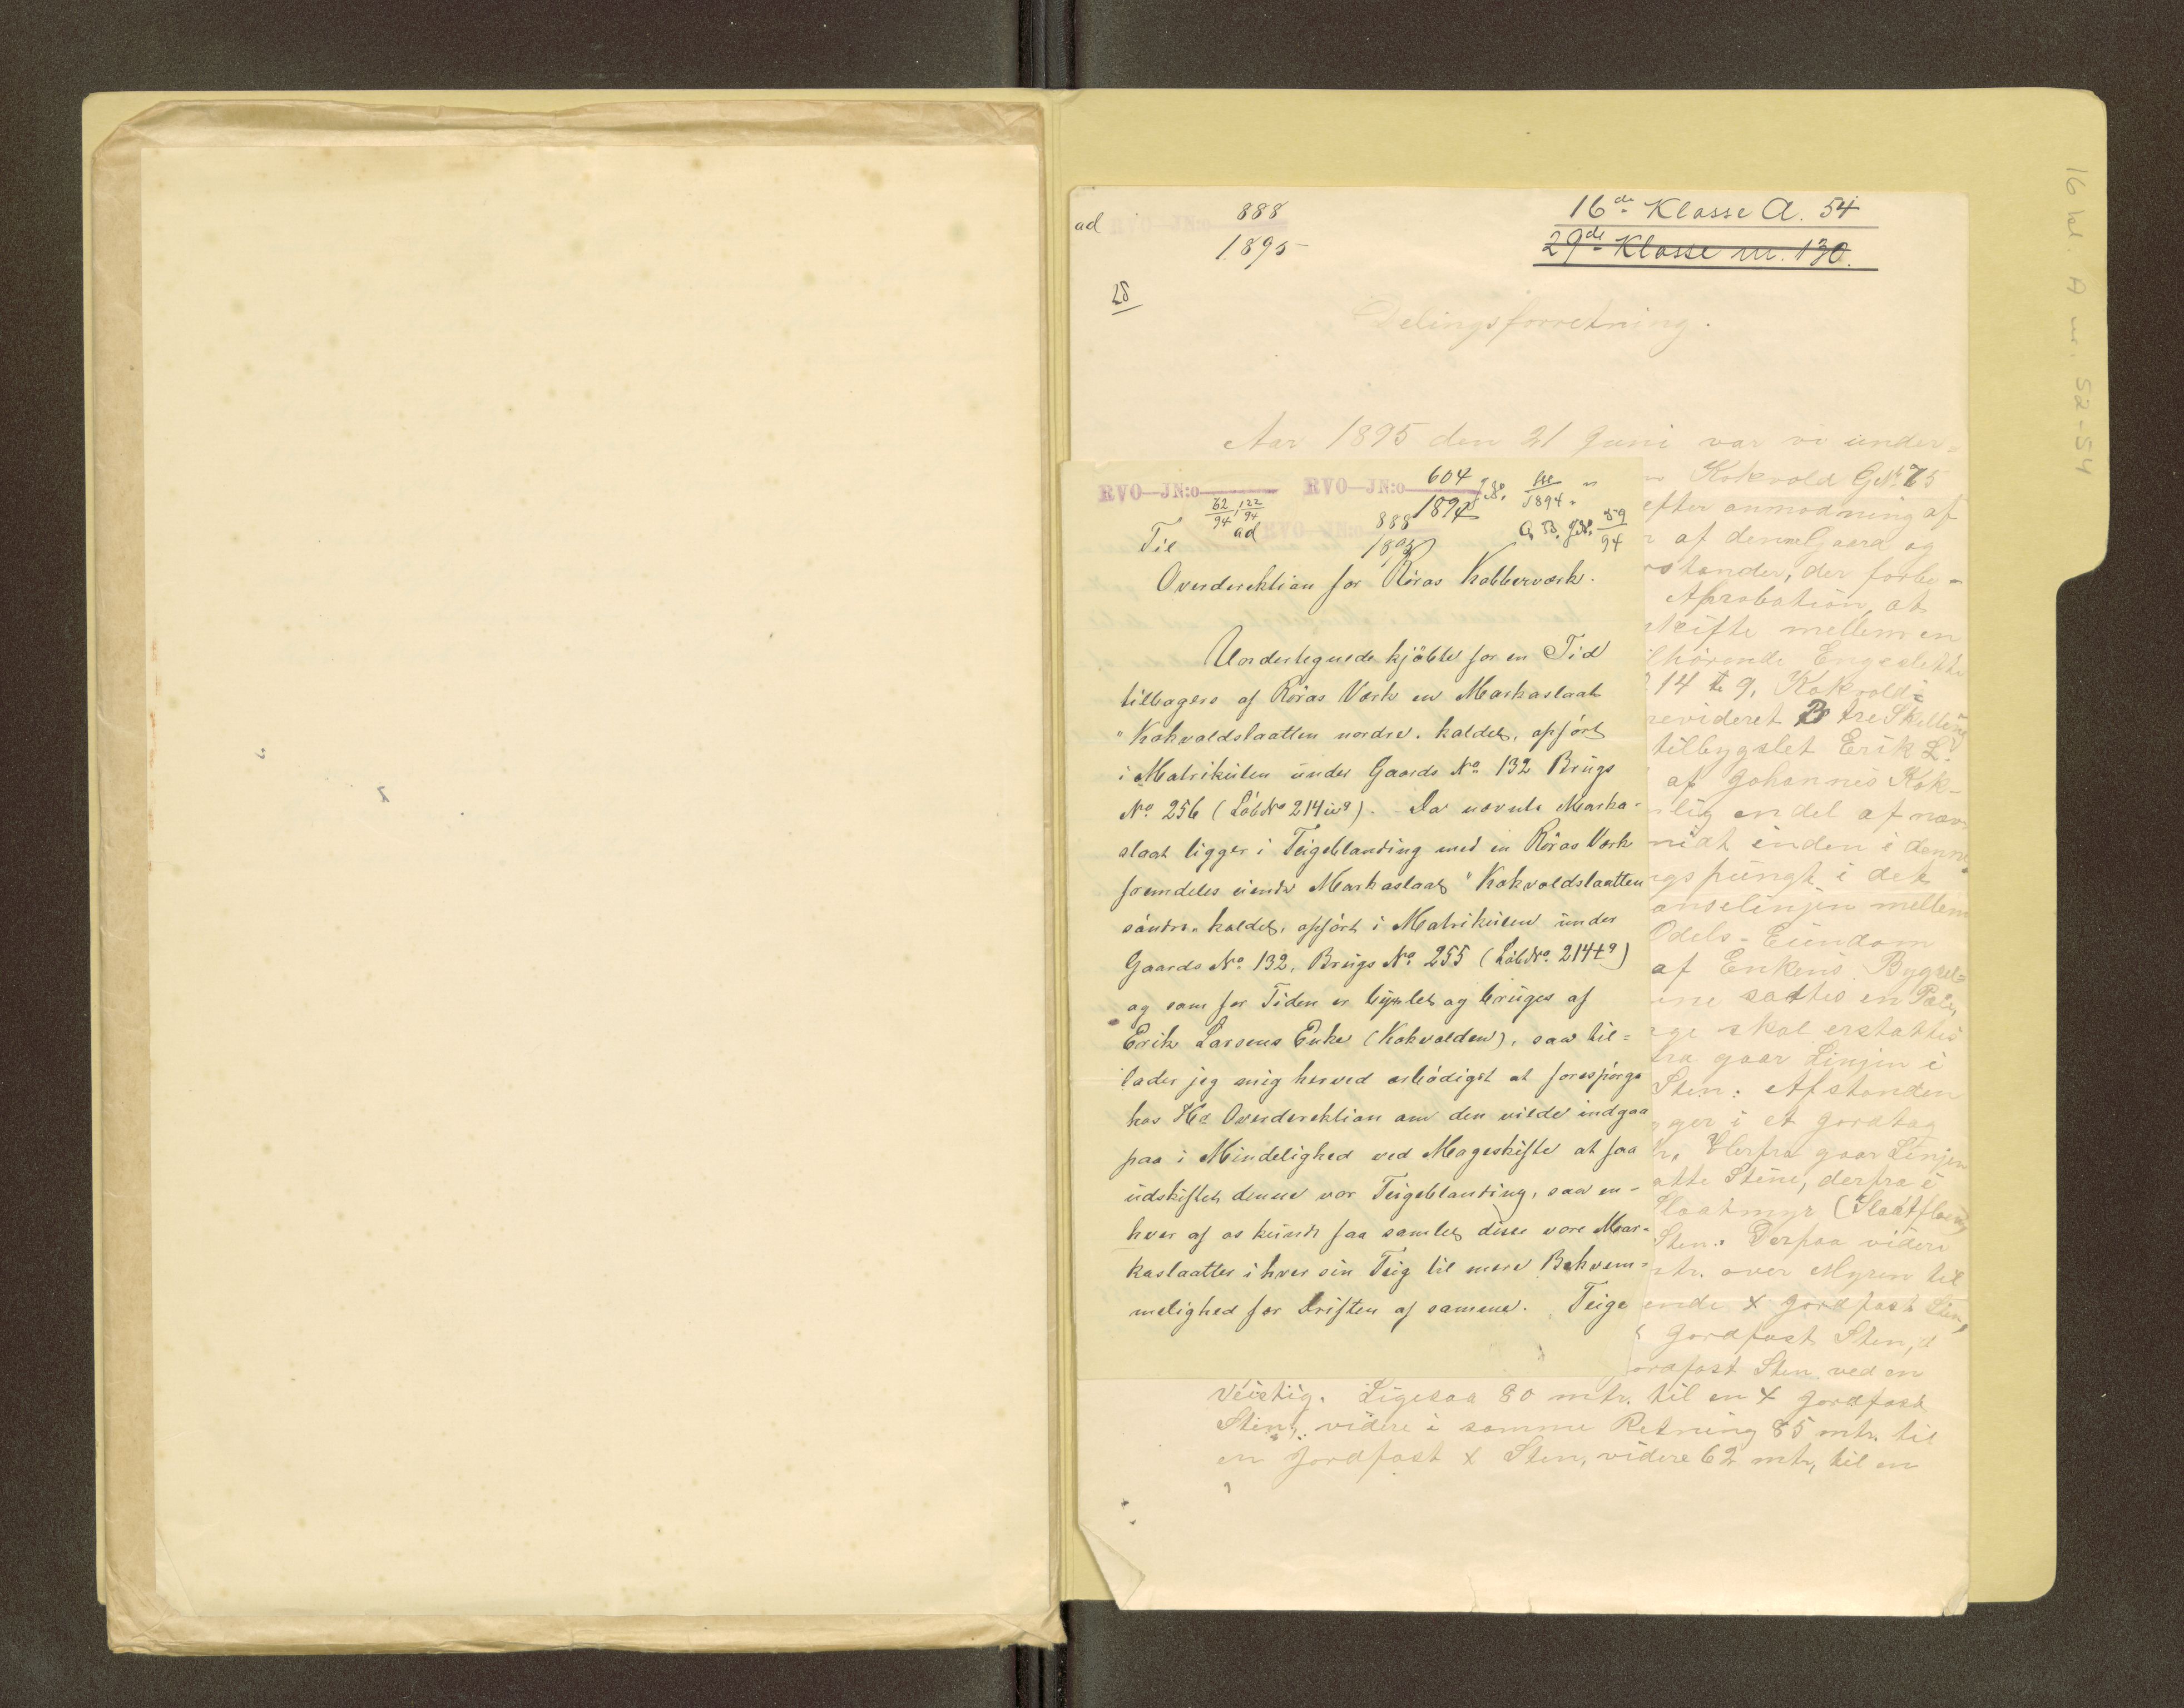 16 kl A nr. 52-54
ad 888
1895
16de Klasse A. 54
29de Klasse nr. 130.
Delingsforretning.
Aar 1895 den 21 Juni var vi under-
Kokvold GNr. 75
efter anmodning af
af denne Gaard og
der forbe-
Aprobation, at
mellem en
Engeslette
214 t 9, Kokvold-
revideret tre Skilling
tilbygslet Erik L.
af Johannes Kok-
en del af
inden i denne
i det
mellem
Odels-Eiindom
af Enkens Bygsel-
sattes en Pæl,
skal erstattes
gaar Linjen i
Sten. Afstanden
i et Jordtag
Herfra gaar Linjen
Stene, derfra i
Slaatmyr (Slaatflo
Sten. Derpaa videre
mtr. over Myren til
X jordfast Sten,
jordfast Sten,
ordfast Sten ved en
Veistig. Ligesaa 80 mtr. til en X jordfast
Sten, videre i samme Retning 85 mtr. til
en jordfast X Sten, videre 62 mtr, til en
RVO-JN:o RVO-JN:o 604
1894
62/94, 122/94
ad 888
1895
59/94
Til
Overdirektion for Röros Kobberværk.
Undertegnede kjöbte for en Tid
tilbagers af Röros Værk en Markaslaat
"Kokvoldslaatten nordre" kaldet, opfört
i Matrikulen under Gaards No 132 Brugs
No 256 (LöbNo 214 u9). Da nævnte Marka-
slaat ligger i Teigeblanding med en Röros Værk
fremdeles eiende Markaslaat "Kokvoldslaatten
söndre" kaldet, opfört i Matrikulen under
Gaards No 132, Brugs No 255 (LöbNo. 214 t9)
og som for Tiden er bygslet og bruges af
Erik Larsens Enke (Kokvolden), saa til-
lader jeg mig herved ærbödigst at forespörge
hos Hr Overdirektion om den vilde indgaa
paa i Mindelighed ved Mageskifte at faa
udskiftet denne vor Teigeblanding, saa en-
hver af os kunde faa samlet disse vore Mar-
kaslaatter i hver sin Teig til mere Bekvem-
melighed for Driften af samme. Teige